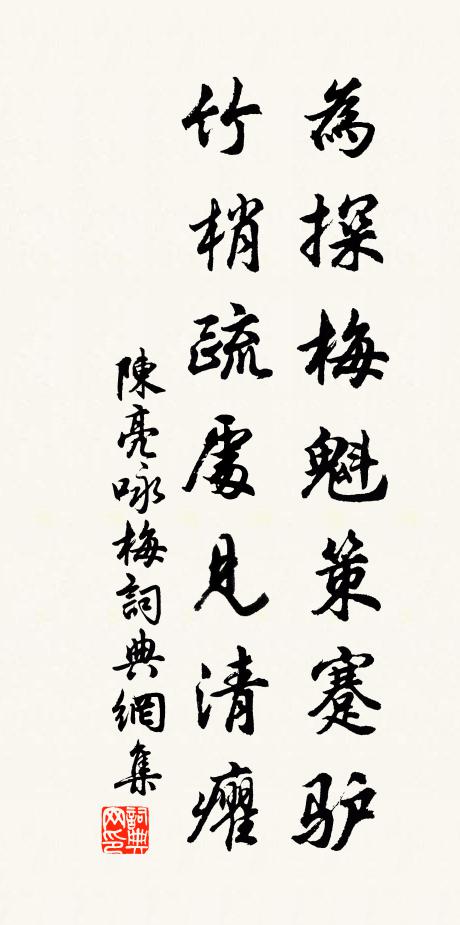 為探梅魁策蹇驴
竹梢疏處見清癯
陳亮咏梅詞典網集
詞典网印